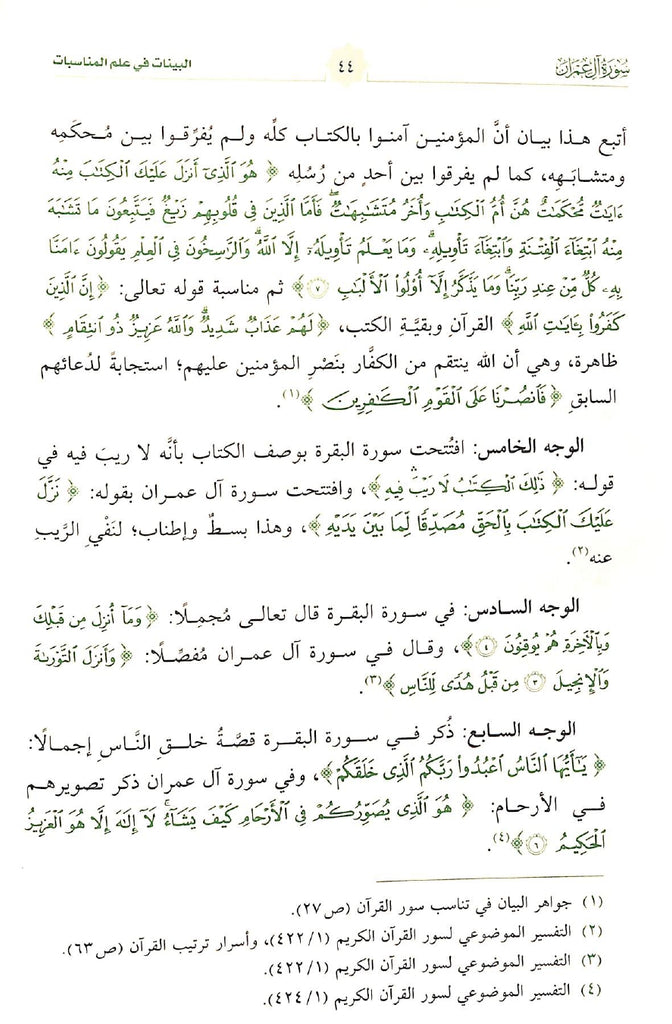 سورة آل عمران ٤٤ البينات في علم المناسبات
أتبع هذا بيان أنَّ المؤمنين آمنوا بالكتاب كلِّه ولم يُفرِّقوا بين مُحكَمِه
ومتشابَهِه، كما لم يفرقوا بين أحدٍ من رُسُلِه ﴿ هُوَ الَّذِيٓ أَنزَلَ عَلَيْكَ الْكِتَابَ مِنْهُ
ءَايَاتٌ مُّحْكَمَاتٌ هُنَّ أُمُّ الْكِتَابِ وَأُخَرُ مُتَشَابِهَاتٌ ۖ فَأَمَّا الَّذِينَ فِي قُلُوبِهِمْ زَيْغٌ فَيَتَّبِعُونَ مَا تَشَابَهَ
مِنْهُ ابْتِغَآءَ الْفِتْنَةِ وَابْتِغَآءَ تَأْوِيلِهِۦ ۗ وَمَا يَعْلَمُ تَأْوِيلَهُۥٓ إِلَّا اللَّهُ ۗ وَالرَّاسِخُونَ فِي الْعِلْمِ يَقُولُونَ ءَامَنَّا
بِهِۦ كُلٌّ مِّنْ عِندِ رَبِّنَا ۗ وَمَا يَذَّكَّرُ إِلَّآ أُوْلُوا الْأَلْبَابِ ٧ ﴾ ثم مناسبة قوله تعالى: ﴿ إِنَّ الَّذِينَ
كَفَرُوا بِـَٔايَاتِ اللَّهِ ﴾ القرآن وبقيَّةِ الكتب، ﴿ لَهُمْ عَذَابٌ شَدِيدٌ ۗ وَاللَّهُ عَزِيزٌ ذُو انتِقَامٍ ﴾
ظاهرة، وهي أن الله ينتقم من الكفَّار بنَصْرِ المؤمنين عليهم؛ استجابةً لدُعائهم
السابقِ ﴿ فَانصُرْنَا عَلَى الْقَوْمِ الْكَافِرِينَ ﴾(١).
الوجه الخامس: افتُتحت سورة البقرة بوصف الكتاب بأنَّه لا ريبَ فيه في
قوله: ﴿ ذَٰلِكَ الْكِتَابُ لَا رَيْبَ ۛ فِيهِ ﴾، وافتتحت سورة آل عمران بقوله: ﴿ نَزَّلَ
عَلَيْكَ الْكِتَابَ بِالْحَقِّ مُصَدِّقًا لِّمَا بَيْنَ يَدَيْهِ ﴾، وهذا بسطٌ وإطناب؛ لنَفْيِ الرَّيبِ
عنه(٢).
الوجه السادس: في سورة البقرة قال تعالى مُجمِلًا: ﴿ وَمَآ أُنزِلَ مِن قَبْلِكَ
وَبِالْآخِرَةِ هُمْ يُوقِنُونَ ٤ ﴾، وقال في سورة آل عمران مُفصِّلًا: ﴿ وَأَنزَلَ التَّوْرَاةَ
وَالْإِنجِيلَ ٣ مِن قَبْلُ هُدًى لِّلنَّاسِ ﴾(٣).
الوجه السابع: ذُكر في سورة البقرة قصَّةُ خلقِ النَّاسِ إجمالًا:
﴿ يَـٰٓأَيُّهَا النَّاسُ اعْبُدُوا رَبَّكُمُ الَّذِي خَلَقَكُمْ ﴾، وفي سورة آل عمران ذكر تصويرهم
في الأرحام: ﴿ هُوَ الَّذِي يُصَوِّرُكُمْ فِي الْأَرْحَامِ كَيْفَ يَشَآءُ ۚ لَآ إِلَٰهَ إِلَّا هُوَ الْعَزِيزُ
الْحَكِيمُ ٦ ﴾(٤).
(١) جواهر البيان في تناسب سور القرآن (ص٢٧).
(٢) التفسير الموضوعي لسور القرآن الكريم (٤٢٢/١)، وأسرار ترتيب القرآن (ص٦٣).
(٣) التفسير الموضوعي لسور القرآن الكريم (٤٢٢/١).
(٤) التفسير الموضوعي لسور القرآن الكريم (٤٢٤/١).